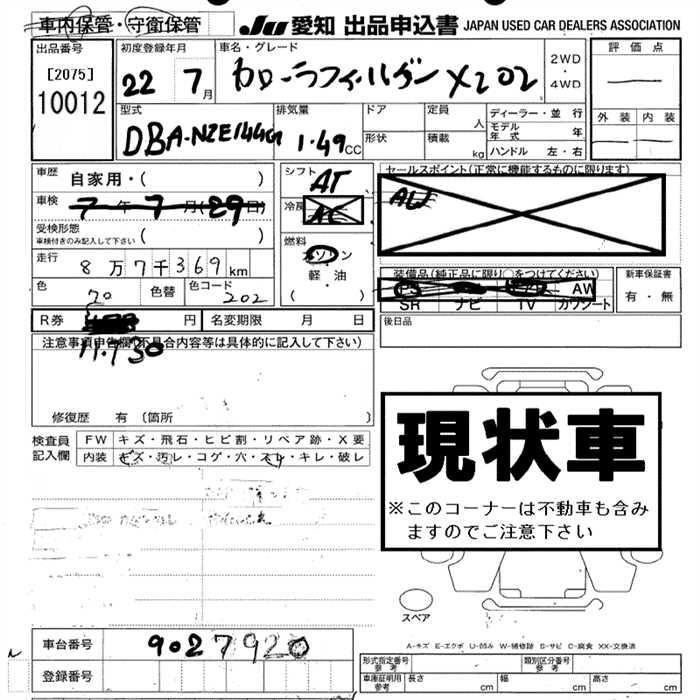 車内保管・守衛保管
JU 愛知 出品申込書 JAPAN USED CAR DEALERS ASSOCIATION
出品番号
[2075]
10012
初度登録年月
22 7月
車名・グレード
カローラフィールダー X202
2WD
・
4WD
評価点
外装 内装
型式
DBA-NZE144G
排気量
1.49CC
ドア
形状
定員 人
積載 kg
ディーラー・並行
モデル年式 年
ハンドル 左・右
車歴 自家用・( )
車検 7年7月(29日)
受検形態
車検付きのみ記入して下さい ( )
走行 8万7千369km
色 色替 色コード 202
シフト AT
冷房 AC
燃料
ガソリン
軽・油
( )
セールスポイント(正常に機能するものに限ります)
装備品(純正品に限り○をつけてください)
PS AW
SR ナビ TV カワシート
新車保証書
有・無
R券 円 名変期限 月 日
後日品
注意事項申告欄(不具合内容等は具体的に記入して下さい)
修復歴 有〔箇所 〕
検査員記入欄
FW キズ・飛石・ヒビ割・リペア跡・X要
内装 キズ・汚レ・コゲ・穴・スレ・キレ・破レ
現状車
※このコーナーは不動車も含み
ますのでご注意下さい
スペア
A-キズ E-エクボ U-凹み W-補修跡 S-サビ C-腐食 XX-交換済
車台番号 9027920
登録番号
形式指定番号 参考
類別区分番号 参考
車庫証明用 参考 長さ cm 幅 cm 高さ cm